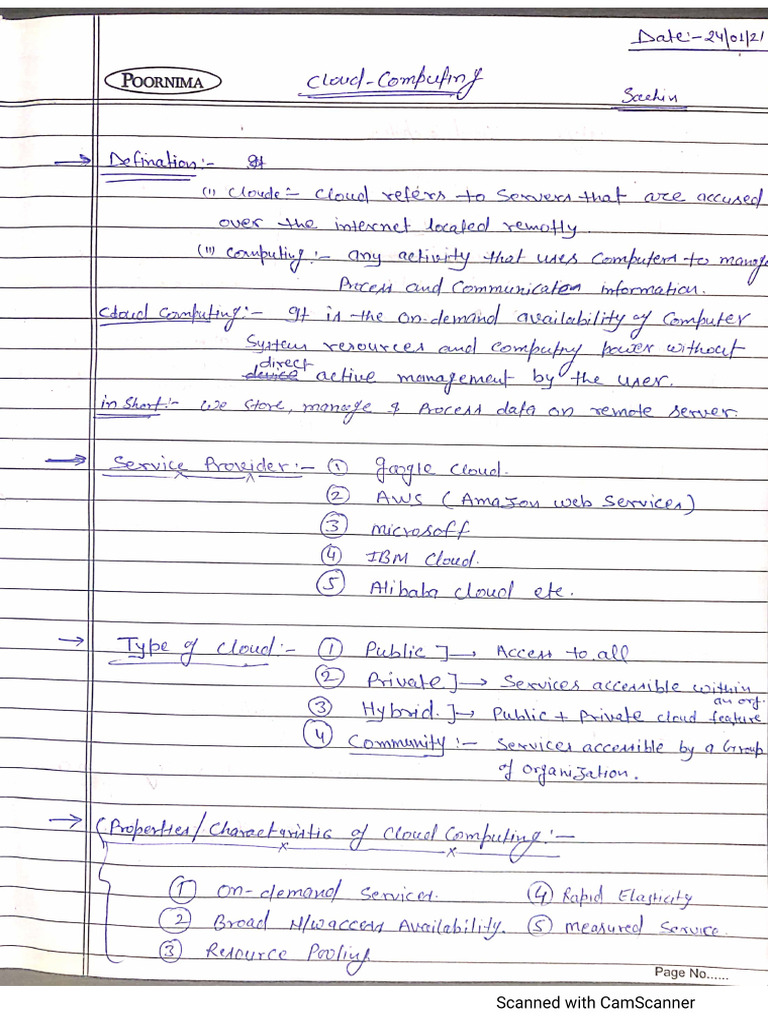 Date:- 24/01/21
POORNIMA
Cloud-Computing
Sachin
→ Defination:- It
(i) Cloude:- Cloud refers to servers that are accused
over the internet located remotly.
(ii) Computing:- any activity that uses Computers to manage
Process and Communicaten information.
Cloud Computing:- It is the on-demand availability of Computer
System resources and computing power without
device direct active management by the user.
in Short:- We store, manage & Process data on remote server.
→ Service Provider:- ① Google Cloud.
② AWS (Amazon web Services)
③ microsoft
④ IBM Cloud.
⑤ Alibaba cloud etc.
→ Type of Cloud:- ① Public] → Access to all
② Private] → Services accessible within an org.
③ Hybrid.] → Public + Private cloud feature
④ Community:- Services accessible by a Group
of organization.
→ Properties/Characteristic of Cloud Computing:-
① On-demand Services. ④ Rapid Elasticity
② Broad N/w access Availability. ⑤ measured Service.
③ Resource Pooling.
Page No......
Scanned with CamScanner